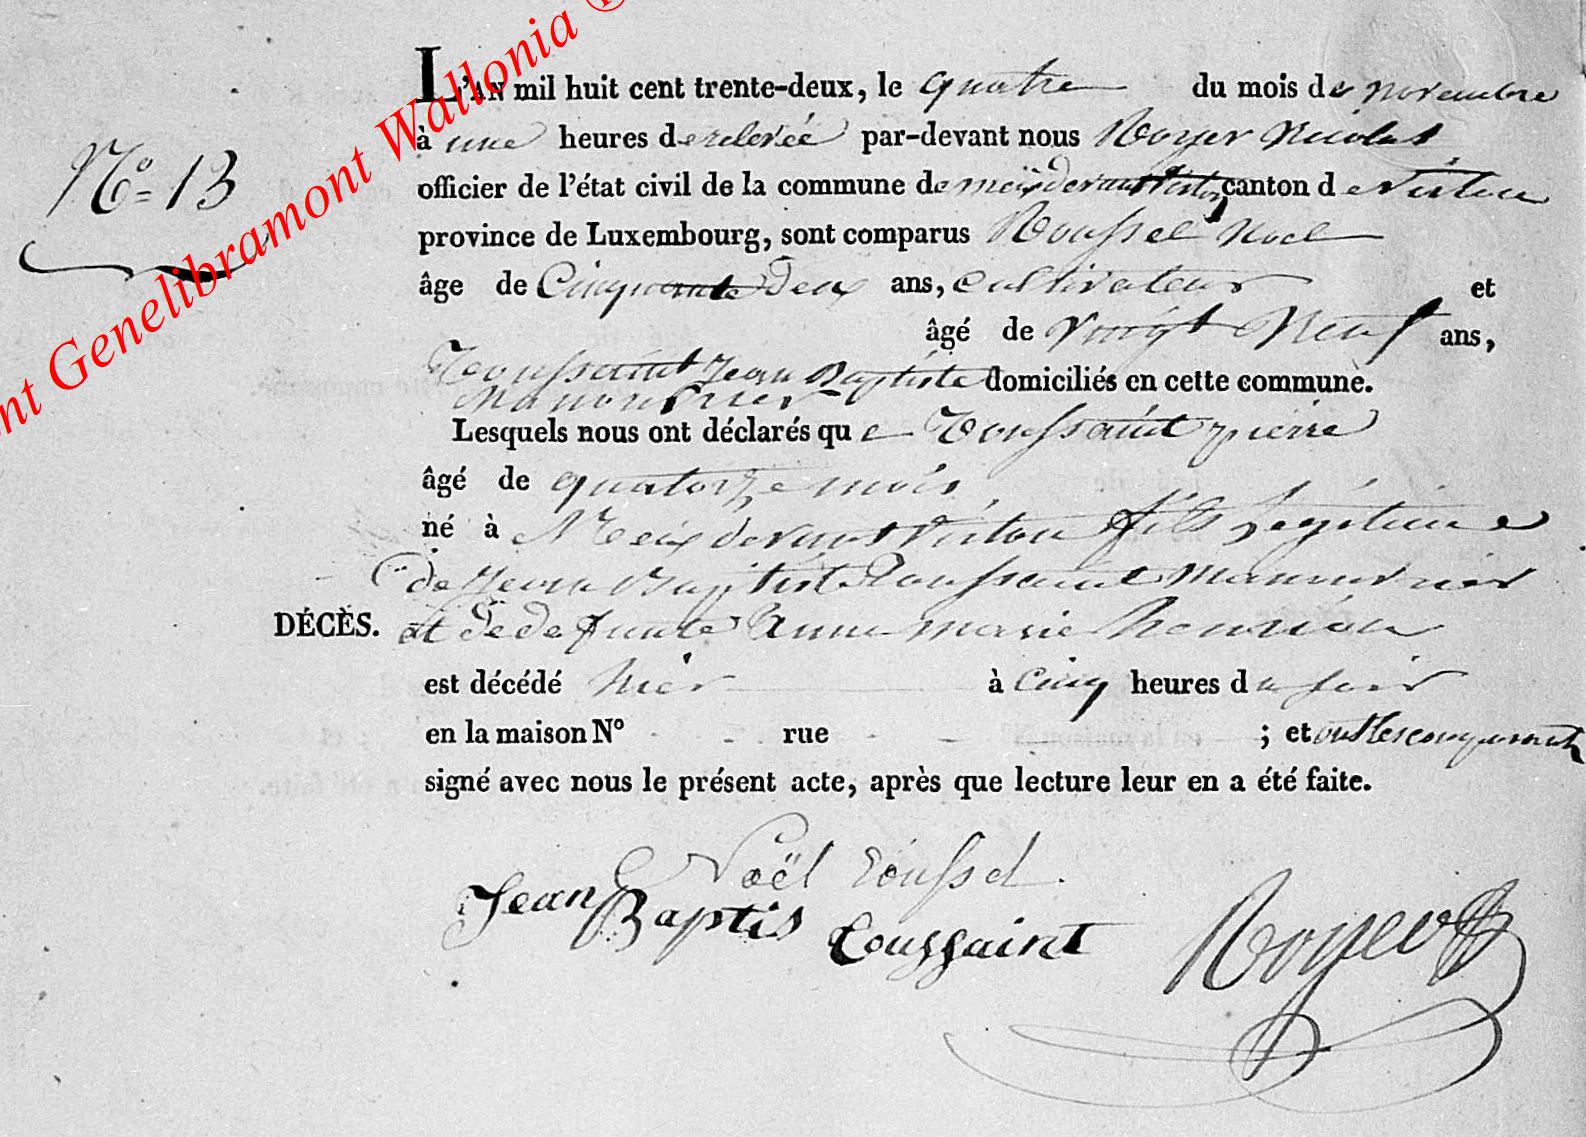 nt Genelibramont Wallonia ©
L'AN mil huit cent trente-deux, le quatre du mois de novembre
à une heures de relevée par-devant nous Royer Nicolas
N° 13
officier de l'état civil de la commune de meix devant Virton, canton de Virton
province de Luxembourg, sont comparus Roussel Noel
âge de Cinquante Deux ans, cultivateur et
âgé de Vingt Neuf ans,
Toussaint Jean Baptiste domiciliés en cette commune.
Manouvrier
Lesquels nous ont déclarés que Toussaint pierre
âgé de quatorze mois,
né à Meix devant Virton fils légitime
de Jean Baptiste Toussaint manouvrier
DÉCÈS. et de defunte Anne marie henrion
est décédé hier à Cinq heures du soir
en la maison N° rue ; et ont les comparants
signé avec nous le présent acte, après que lecture leur en a été faite.
Noël Roussel
Jean Baptis Toussaint Royer